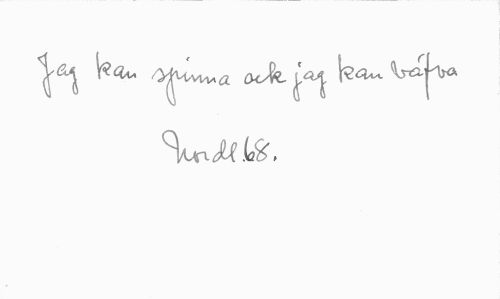 Jag kan spinna ock jag kan väfva
Nordl. 68.